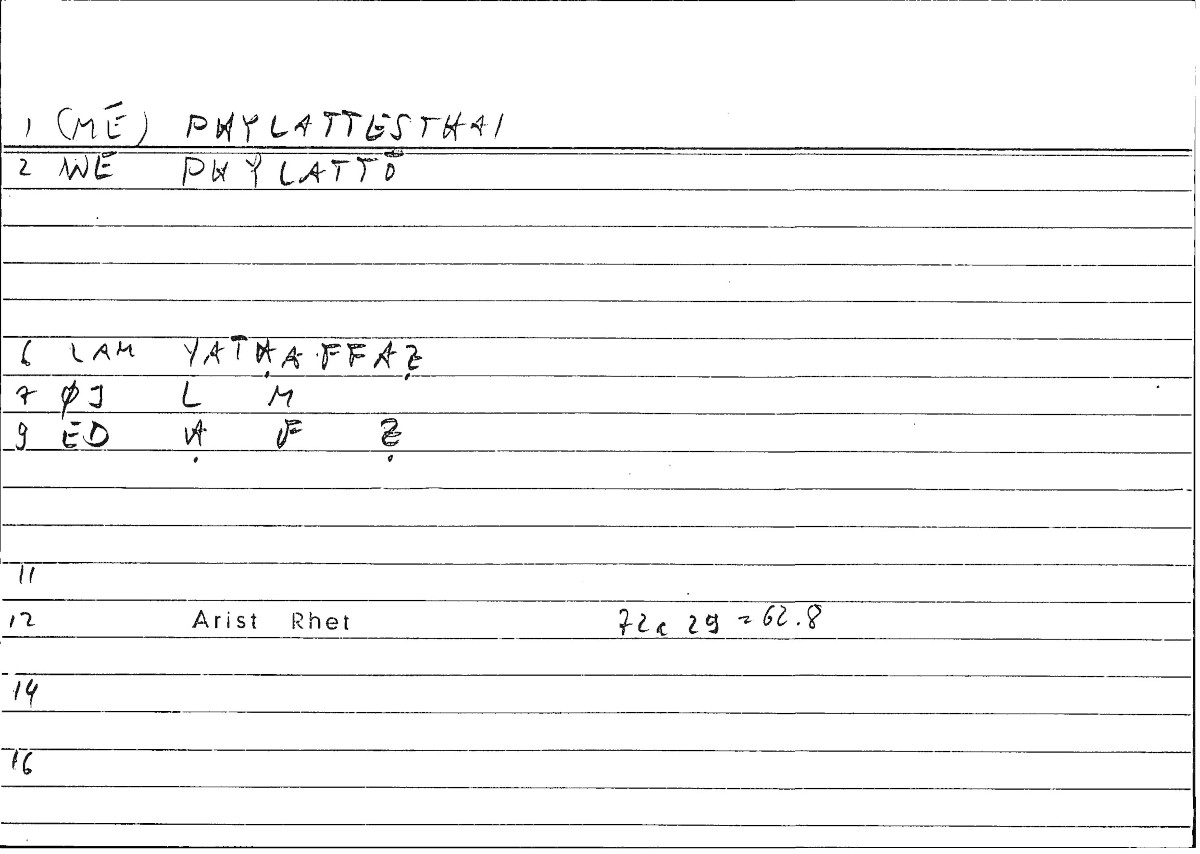 1 (MĒ) PHYLATTESTHAI
2 WE PHYLATTŌ
6 LAM YATḤAFFAẒ
7 ØJ L M
9 ED Ḥ F Ẓ
11
12 Arist Rhet 72a 29 = 62.8
14
16